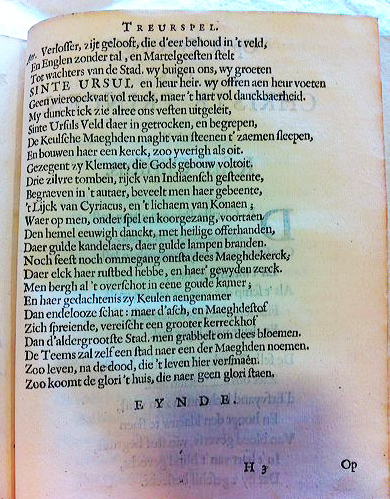 TREURSPEL.
Aer. Verlosser, zijt gelooft, die d'eer behoud in 't veld,
En Englen zonder tal, en Martelgeesten stelt
Tot wachters van de Stad. wy buigen ons, wy groeten
SINTE URSUL en heur heir. wy offren aen heur voeten
Geen wieroockvat vol reuck, maer 't hart vol danckbaerheid.
My dunckt ick zie alree ons vesten uitgeleit,
Sinte Ursuls Veld daer in getrocken, en begrepen,
De Keulsche Maeghden maght van steenen t' zaemen sleepen,
En bouwen haer een kerck, zoo yverigh als oit.
Gezegent zy Klemaet, die Gods gebouw voltoit.
Drie zilvre tomben, rijck van Indiaensch gesteente,
Begraeven in 't autaer, beveelt men haer gebeente,
't Lijck van Cyriacus, en 't lichaem van Konaen;
Waer op men, onder spel en koorgezang, voortaen
Den hemel eeuwigh danckt, met heilige offerhanden,
Daer gulde kandelaers, daer gulde lampen branden.
Noch feest noch ommegang ontsta dees Maeghdekerck,
Daer elck haer rustbed hebbe, en haer' gewyden zerck.
Men bergh al 't overschot in eene goude kamer;
En haer gedachtenis zy Keulen aengenamer
Dan endelooze schat: maer d'asch, en Maeghdestof
Zich spreiende, vereischt een grooter kerreckhof
Dan d'aldergrootste Stad. men grabbelt om dees bloemen.
De Teems zal zelf een stad naer een der Maeghden noemen.
Zoo leven, na de dood, die 't leven hier versmaên.
Zoo koomt de glori 't huis, die naer geen glori staen.
EYNDE.
H 3
Op